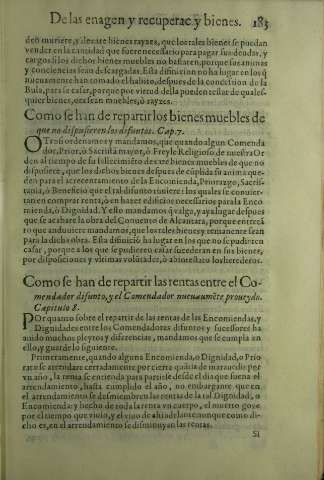 De las enagen y recuperac y bienes. 183
den muriere, y lleuare bienes rayzes, que los tales bienes se puedan
vender en la cantidad que fuere necessario para pagar sus deudas, y
cargos si los dichos bienes muebles no bastaren, porque sus animas
y conciencias sean descargadas. Esta difinicion no ha lugar en los q̃
nueuamente han tomado el habito, despues de la concession de la
Bula, para se casar, porque por virtud della pueden testar de quales-
quier bienes, ora sean muebles, ò rayzes.
Como se han de repartir los bienes muebles de
que no dispusieren los difuntos. Cap. 7.
OTrosi ordenamos y mandamos, que quando algun Comenda
dor, Prior, ò Sacrista mayor, ò Freyle Religioso de nuestra Or
den al tiempo de su fallecimiẽto dexare bienes muebles de que no
dispusiere, que los dichos bienes despues de cũplida su anima que-
den para el acrecentamiento de la Encomienda, Priorazgo, Sacris-
tania, ò Beneficio que el tal difunto tuuiere: los quales se conuier-
tan en comprar renta, ò en hazer edificios necessarios para la Enco
mienda, ò Dignidad. Y esto mandamos q̃ valga, y aya lugar despues
que se acabare la obra del Conuento de Alcantara, porque entre tã
to que anduuiere mandamos, que los tales bienes y remanente sean
para la dicha obra. Esta difinició ha lugar en los que no se pudieren
casar, porque a los que se pudieren casar sucederan en sus bienes,
por disposiciones y vltimas voluntades, ò abintestato los herederos.
Como se han de repartir las rentas entre el Co-
mendador difunto, y el Comendador nueuamẽte proueydo.
Capitulo 8.
POr quanto sobre el repartir de las rentas de las Encomiendas, y
Dignidades entre los Comendadores difuntos y sucessores ha
auido muchos pleytos y diferencias, mandamos que se cumpla en
ello, y guarde lo siguiente.
Primeramente, quando alguna Encomienda, o Dignidad, o Prio
rato se arrendare cerradamente por cierta quãtia de marauedis por
vn año, la renta se entienda para partirle desde el dia que fuena el
arrendamiento, hasta cumplido el año, no embargante que en
el arrendamiento se desmiembren las rentas de la tal Dignidad, o
Encomienda: y hecho de toda la renta vn cuerpo, el muerto goze
por el tiempo que viuio, y el viuo de ahi adelante: aunque como di-
cho es, en el arrendamiento se disminuyan las rentas.
Si